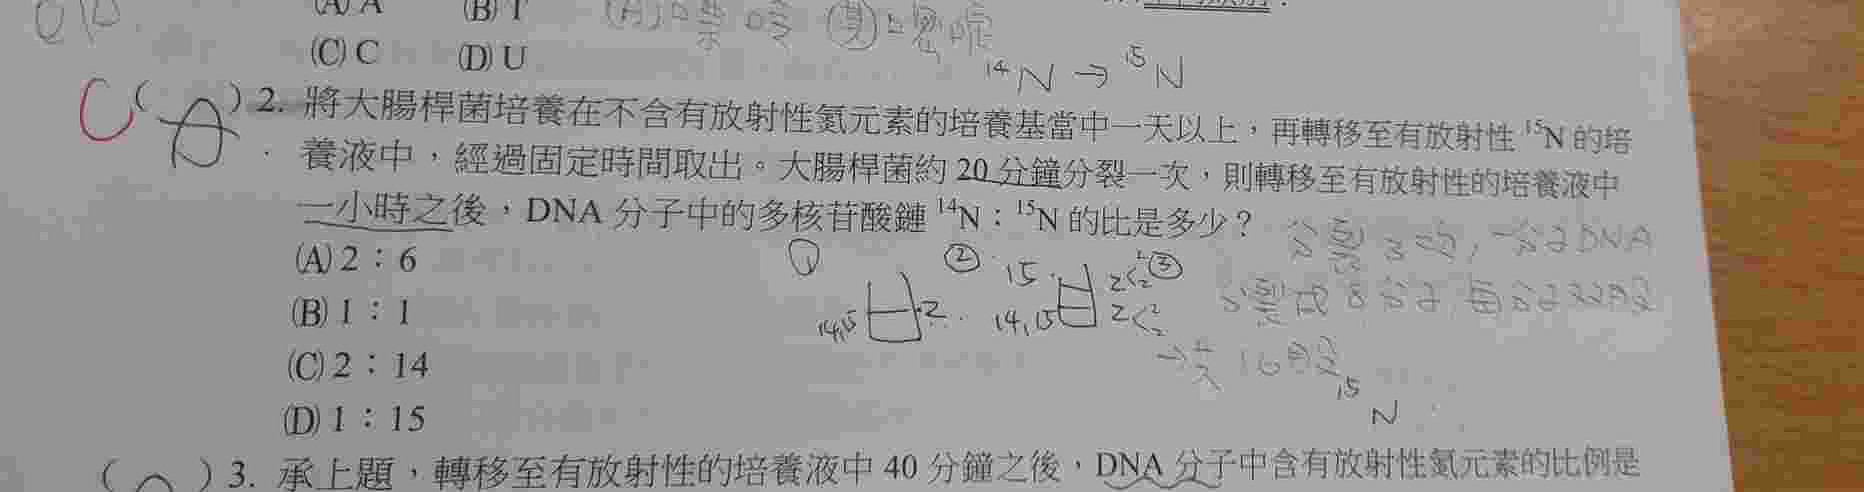 (A) A (B) T
(A)嘌呤 (B)嘧啶
(C) C (D) U
¹⁴N → ¹⁵N
C ( A ) 2. 將大腸桿菌培養在不含有放射性氮元素的培養基當中一天以上，再轉移至有放射性 ¹⁵N 的培
養液中，經過固定時間取出。大腸桿菌約 20 分鐘分裂一次，則轉移至有放射性的培養液中
一小時之後，DNA 分子中的多核苷酸鏈 ¹⁴N：¹⁵N 的比是多少？
(A) 2：6
(B) 1：1
(C) 2：14
(D) 1：15
① ② ③
14,15 2
15
14,15
2<2 2
2<2 2
分裂3次，一分子DNA
分裂成8分子，每分子雙股
→共16股
¹⁵N
( ) 3. 承上題，轉移至有放射性的培養液中 40 分鐘之後，DNA 分子中含有放射性氮元素的比例是